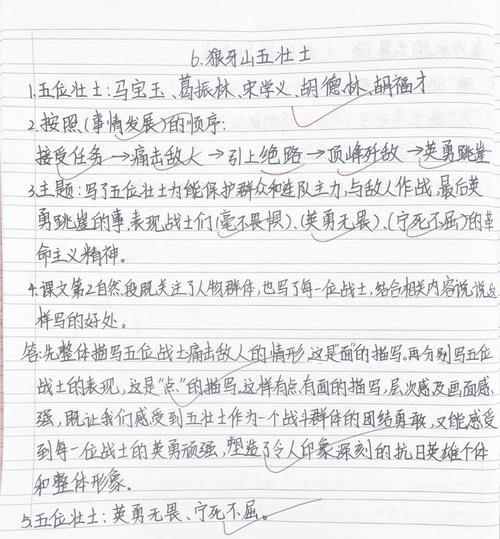 6.狼牙山五壮士
1.五位壮士:马宝玉、葛振林、宋学义、胡德林、胡福才
2.按照(事情发展)的顺序:
接受任务→痛击敌人→引上绝路→顶峰歼敌→英勇跳崖
3.主题:写了五位壮士为能保护群众和连队主力,与敌人作战,最后英
勇跳崖的事,表现战士们(毫不畏惧)、(英勇无畏)、(宁死不屈)的革
命主义精神。
4.课文第2自然段既关注了人物群体,也写了每一位战士,结合相关内容说说这
样写的好处。
答:先整体描写五位战士痛击敌人的情形,这是"面"的描写。再分别写五位
战士的表现,这是"点"的描写。这样有点有面的描写,层次感及画面感
强,既让我们感受到五壮士作为一个战斗群体的团结勇敢,又能感受
到每一位战士的英勇顽强,塑造了令人印象深刻的抗日英雄个体
和整体形象。
5.五位壮士:英勇无畏、宁死不屈。